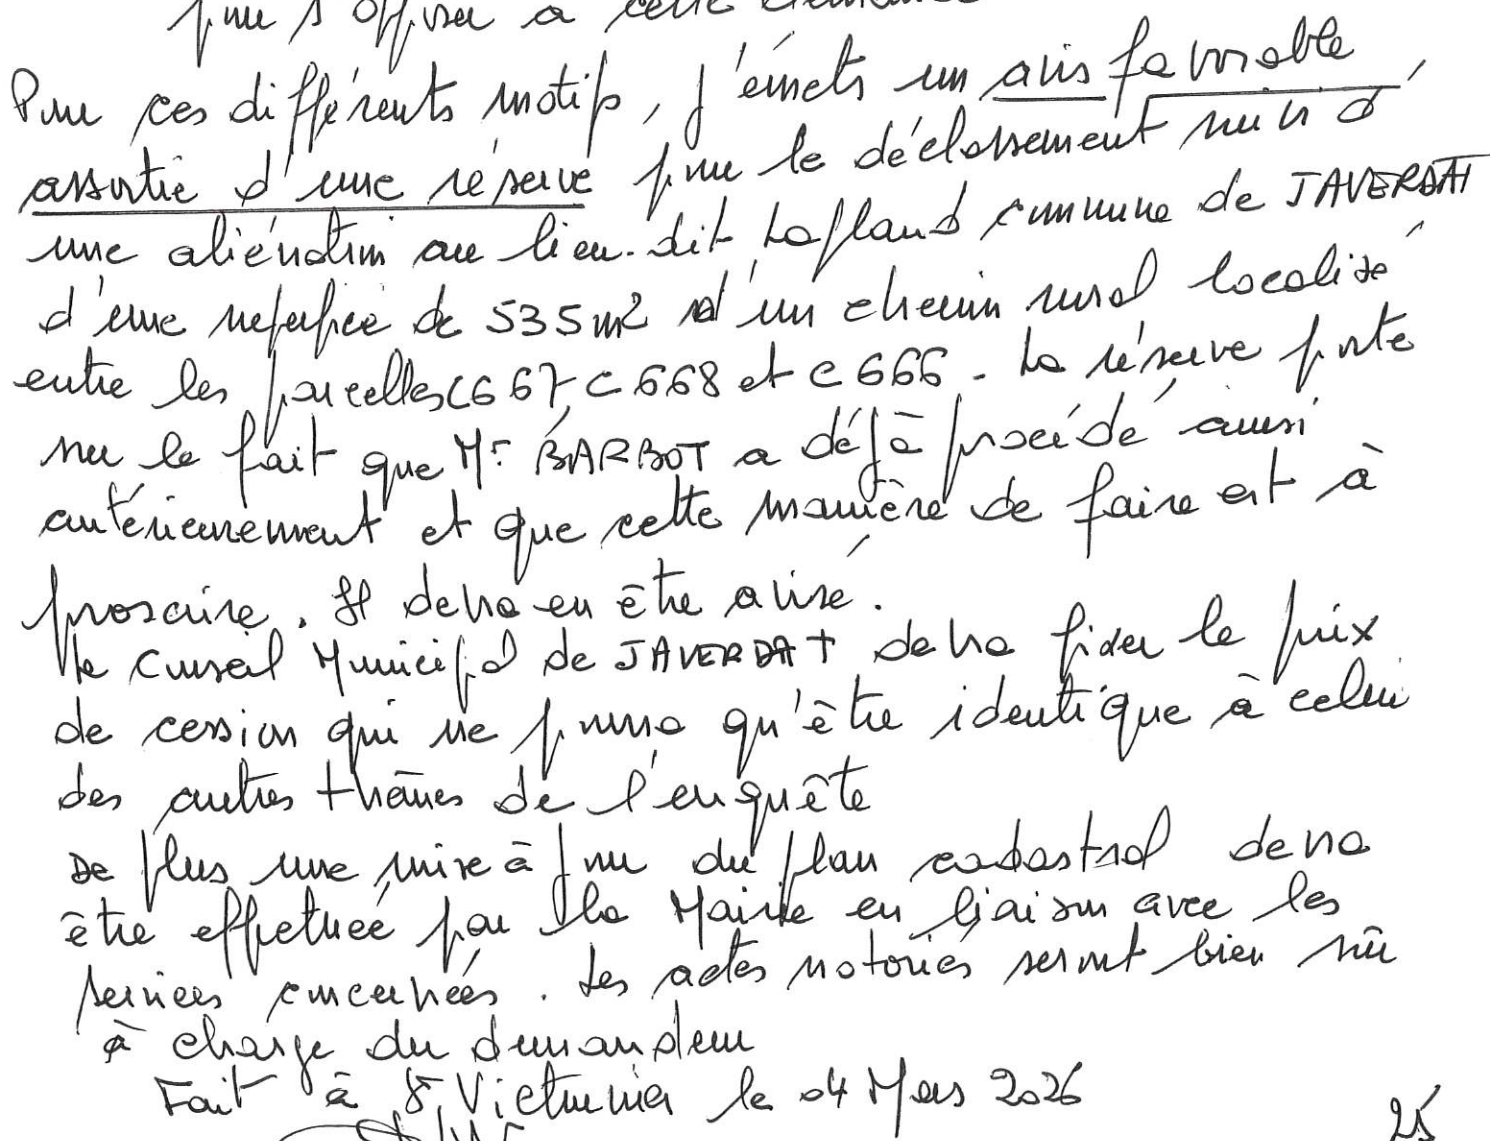 pour s'opposer à cette
Pour ces différents motifs, j'émets un avis favorable,
assortie d'une réserve pour le déclassement suivi d
une aliénation au lieu-dit Lafland commune de JAVERDAT
d'une superficie de 535 m2 d'un chemin rural localisé
entre les parcelles C667, C668 et C666 - La réserve porte
sur le fait que Mr BARBOT a déjà procédé ainsi
antérieurement et que cette manière de faire est à
proscrire. Il devra en être avisé.
Le Conseil Municipal de JAVERDAT devra fixer le prix
de cession qui ne pourra qu'être identique à celui
des autres thèmes de l'enquête
De plus une mise à jour du plan cadastral devra
être effectuée par la Mairie en liaison avec les
services concernés. Les actes notariés seront bien sûr
à charge du demandeur
Fait à St Victurnien le 04 Mars 2026
25